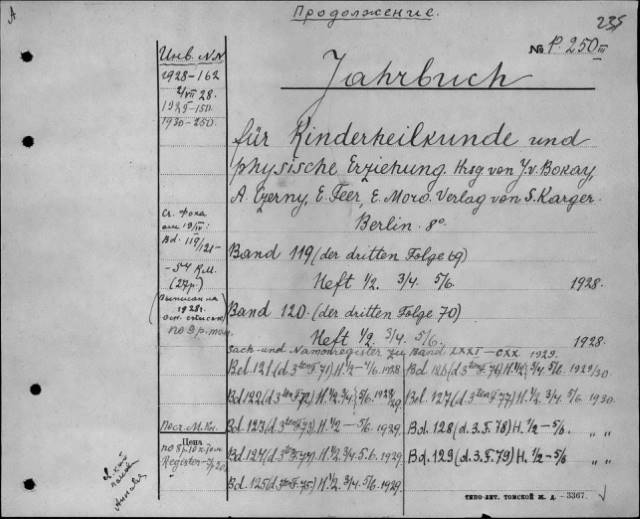 Продолжение.
235
№ P. 250 III
Инв. №№
1928-162
1930-250
Jahrbuch
für Kinderheilkunde und
physische Erziehung. Hrsg von J.v. Bokay,
A. Czerny, E. Feer, E. Moro. Verlag von S. Karger.
Berlin. 8°
Bd. 119/121-
Band 119 (der dritten Folge 69)
Heft 1/2. 3/4. 5/6. 1928.
Band 120. (der dritten Folge 70)
Heft 1/2. 3/4. 5/6. 1928.
Sach-und Namenregister zu Band LXXI-CXX 1929.
Bd. 121 (d. 3ten F. 71) H. 1/2 - 5/6. 1928
Bd. 126 (d. 3ten F. 76) H. 1/2. 3/4. 5/6. 1929/30.
Bd. 122 (d. 3ten F. 72) H. 1/2. 3/4. 5/6. 1928/29.
Bd. 127 (d. 3ten F. 77) H. 1/2. 3/4. 5/6. 1930.
Bd. 123 (d. 3ten F. 73) H. 1/2 - 5/6. 1929.
Bd. 128 (d. 3. F. 78) H. 1/2 - 5/6. " "
Цена
Bd. 124 (d. 3ten F. 74) H. 1/2. 3/4. 5.6. 1929.
Bd. 129 (d. 3. F. 79) H. 1/2 - 5/6. " "
Bd. 125 (d. 3ten F. 75) H. 1/2. 3/4. 5/6. 1929.
ТИПО-ЛИТ. ТОМСКОЙ Ж. Д. - 3367.